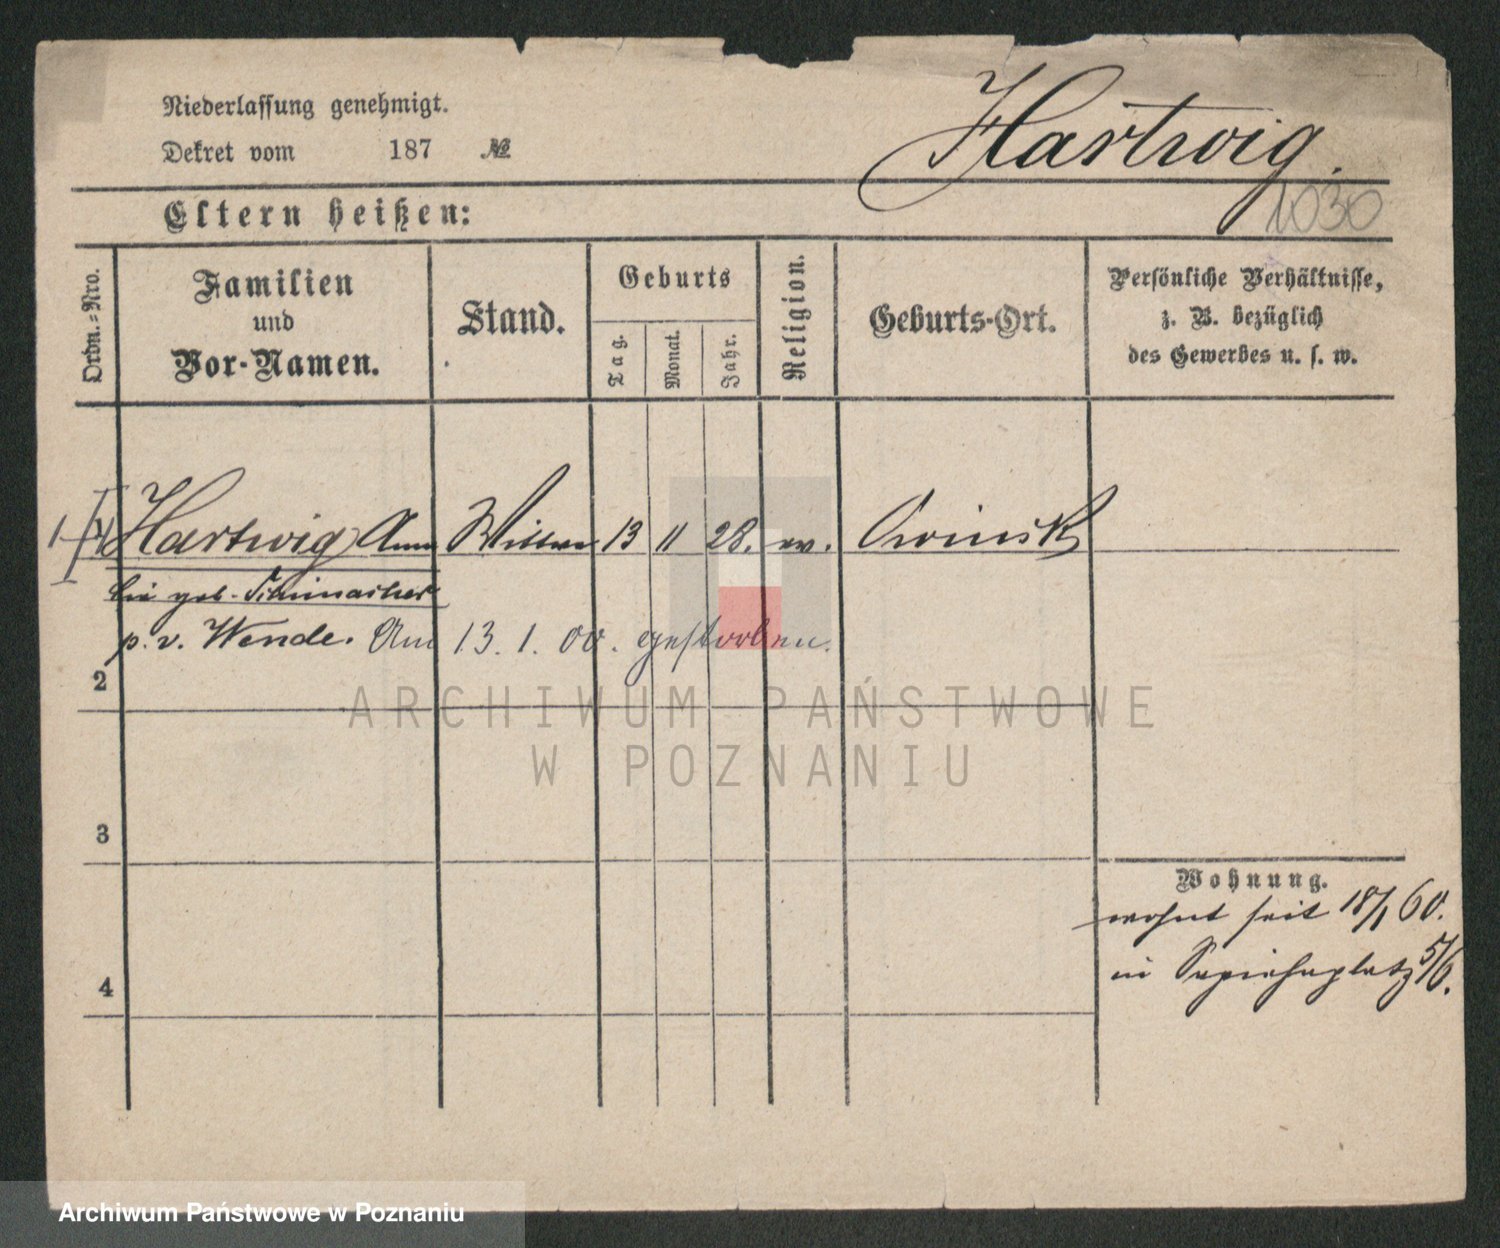 Hartwig.
Niederlassung genehmigt.
Dekret vom 187 №
1030
Eltern heißen:
Ordn.-Nro.
Familien
und
Vor-Namen.
Stand.
Geburts
Tag.
Monat.
Jahr.
Religion.
Geburts-Ort.
Persönliche Verhältnisse,
z. B. bezüglich
des Gewerbes u. s. w.
1 Hartwig Anna Wittwe 13 11 28. ev. Owinsk
geb. Schumacher
p. v. Wende. Am 13. 1. 00. gestorben.
2
ARCHIWUM PAŃSTWOWE
W POZNANIU
3
Wohnung.
wohnt seit 18/1 60.
in Sapiehaplatz 5/6.
4
Archiwum Państwowe w Poznaniu